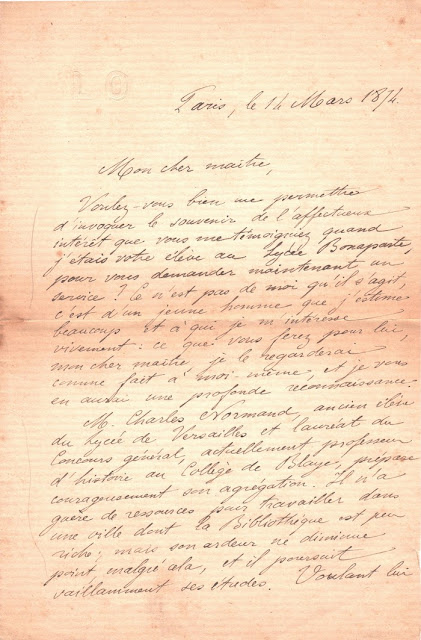 Paris, le 14 Mars 1874.
Mon cher maître,
Voulez-vous bien me permettre
d'invoquer le souvenir de l'affectueux
intérêt que vous me témoigniez quand
j'étais votre élève au Lycée Bonaparte,
pour vous demander maintenant un
service ? Ce n'est pas de moi qu'il s'agit,
c'est d'un jeune homme que j'estime
beaucoup et à qui je m'intéresse
vivement : ce que vous ferez pour lui,
mon cher maître, je le regarderai
comme fait à moi-même, et je vous
en aurai une profonde reconnaissance.
M. Charles Normand, ancien élève
du Lycée de Versailles et lauréat du
Concours général, actuellement professeur
d'histoire au Collège de Blaye, prépare
courageusement son agrégation. Il n'a
guère de ressources pour travailler dans
une ville dont la Bibliothèque est peu
riche ; mais son ardeur ne diminue
point malgré cela, et il poursuit
vaillamment ses études. Voulant lui